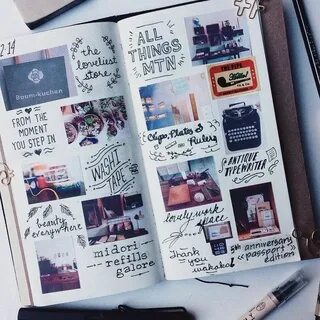 2.14
the
loveliest
store
Baum-kuchen
FROM THE
MOMENT
YOU STEP IN
WASHI
TAPE
beauty
everywhere
midori
refills
galore
ALL
THINGS
MTN
Clips, Plates &
Rulers
ANTIQUE
TYPEWRITER
lovely work
space
Thank
you
wakako!
5th anniversary
"passport"
edition